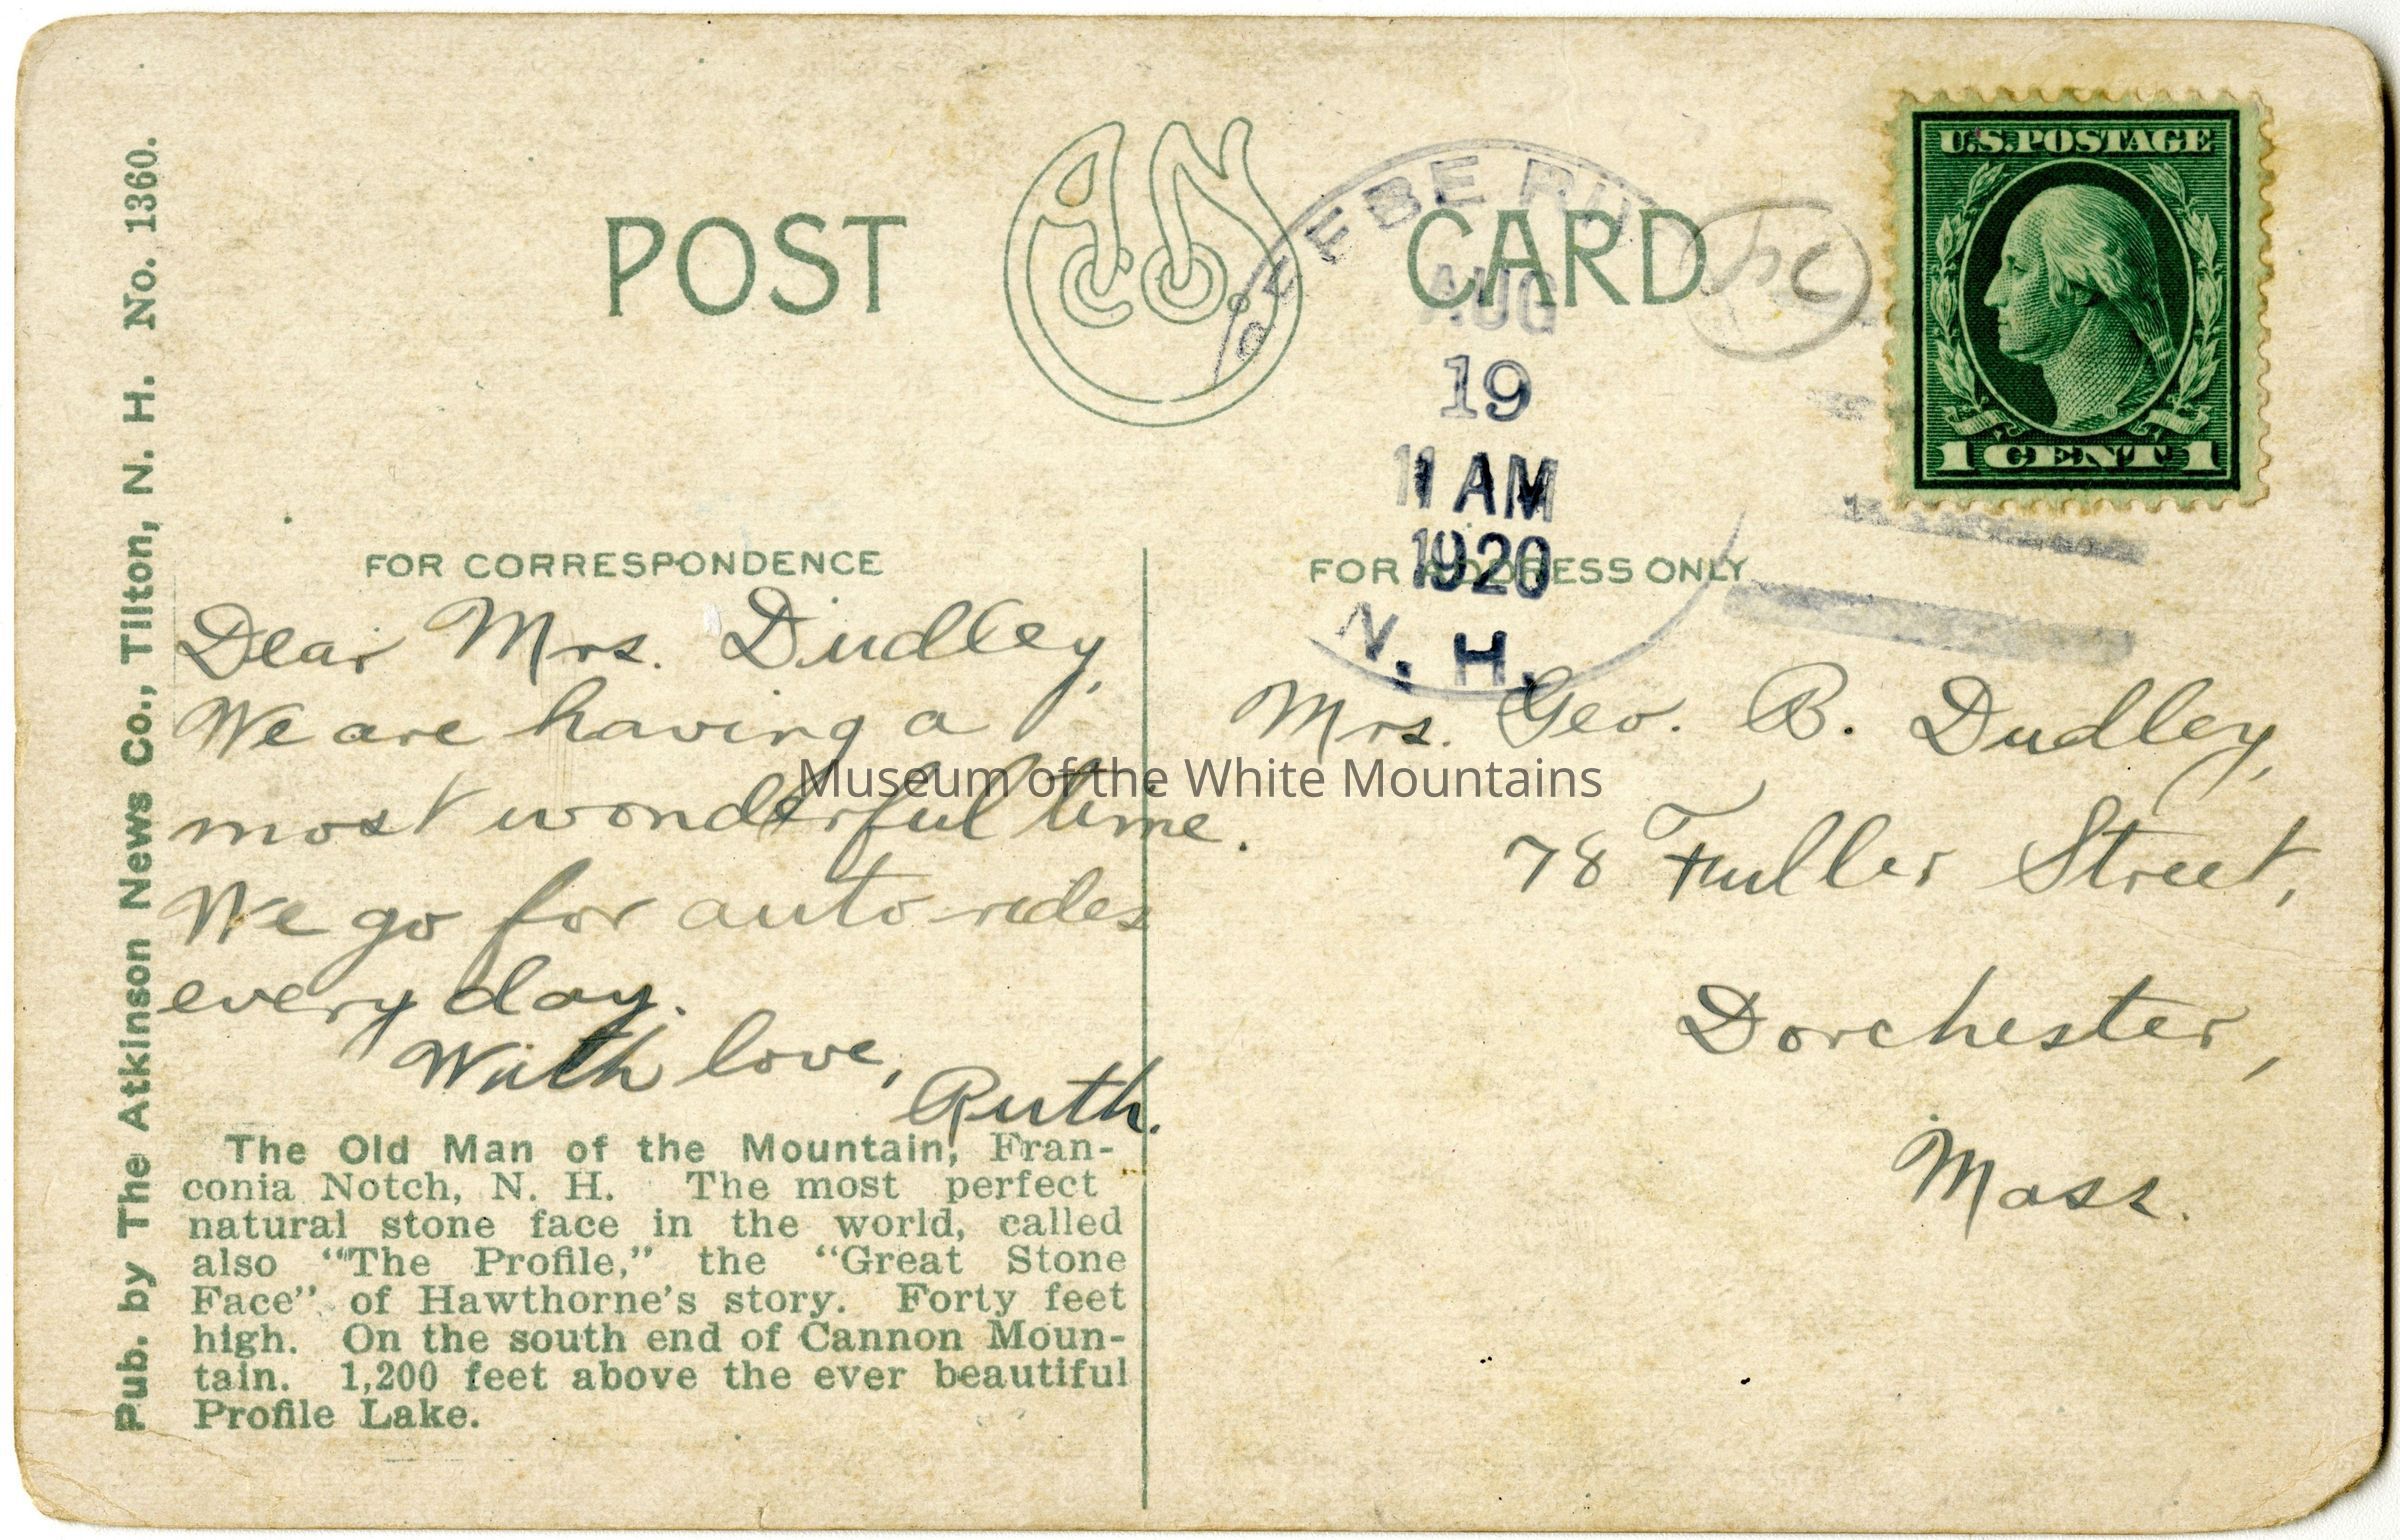 Pub. by The Atkinson News Co., Tilton, N. H. No. 1360.
POST CARD
A N Co.
AUG
19
11 AM
1920
N. H.
U.S. POSTAGE
1 CENT 1
FOR CORRESPONDENCE
Dear Mrs. Dudley,
We are having a
most wonderful time.
We go for auto rides
every day.
With love,
Ruth.
The Old Man of the Mountain, Fran-
conia Notch, N. H. The most perfect
natural stone face in the world, called
also "The Profile," the "Great Stone
Face" of Hawthorne's story. Forty feet
high. On the south end of Cannon Moun-
tain. 1,200 feet above the ever beautiful
Profile Lake.
FOR ADDRESS ONLY
Mrs. Geo. B. Dudley,
78 Fuller Street,
Dorchester,
Mass.
Museum of the White Mountains